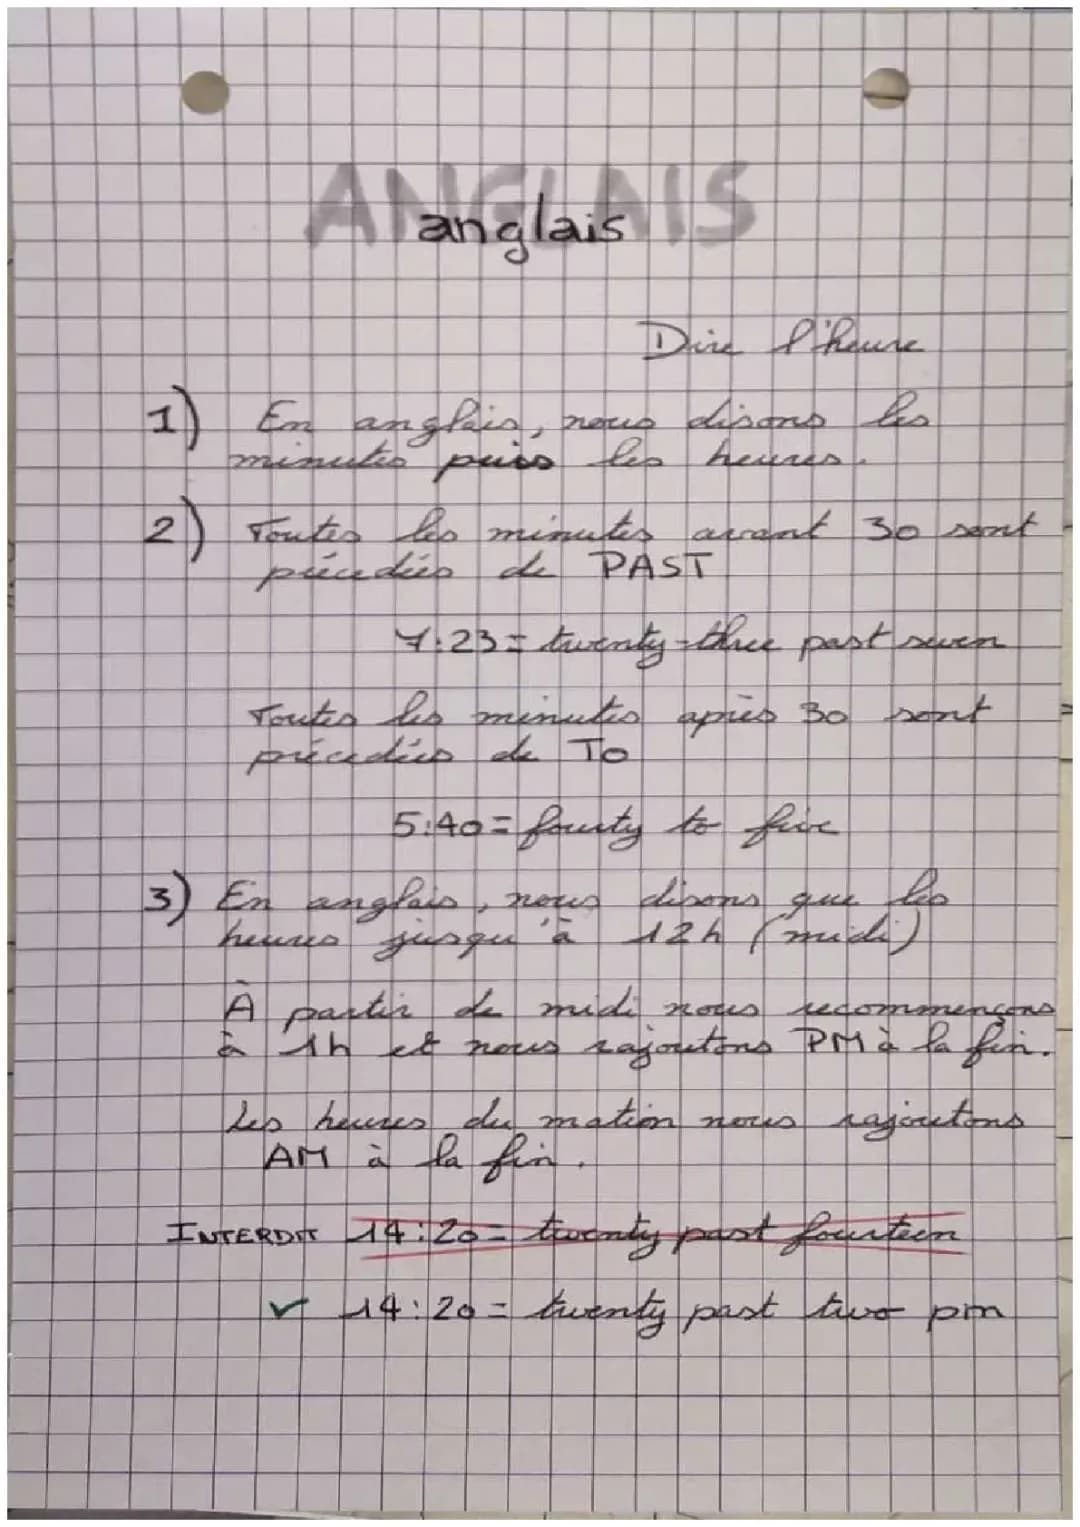 ANGLAIS
anglais
Dire l'heure
1) En anglais, nous disons les
minutes puis les heures.
2) Toutes les minutes avant 30 sont
précédées de PAST
7:23 = twenty-three past seven
Toutes les minutes après 30 sont
précédées de TO
5:40 = fourty to five
3) En anglais, nous disons que les
heures jusqu'à 12h (midi)
À partir de midi nous recommençons
à 1h et nous rajoutons PM à la fin.
Les heures du mation nous rajoutons
AM à la fin.
INTERDIT 14:20 = twenty past fourteen
✓ 14:20 = twenty past two pm